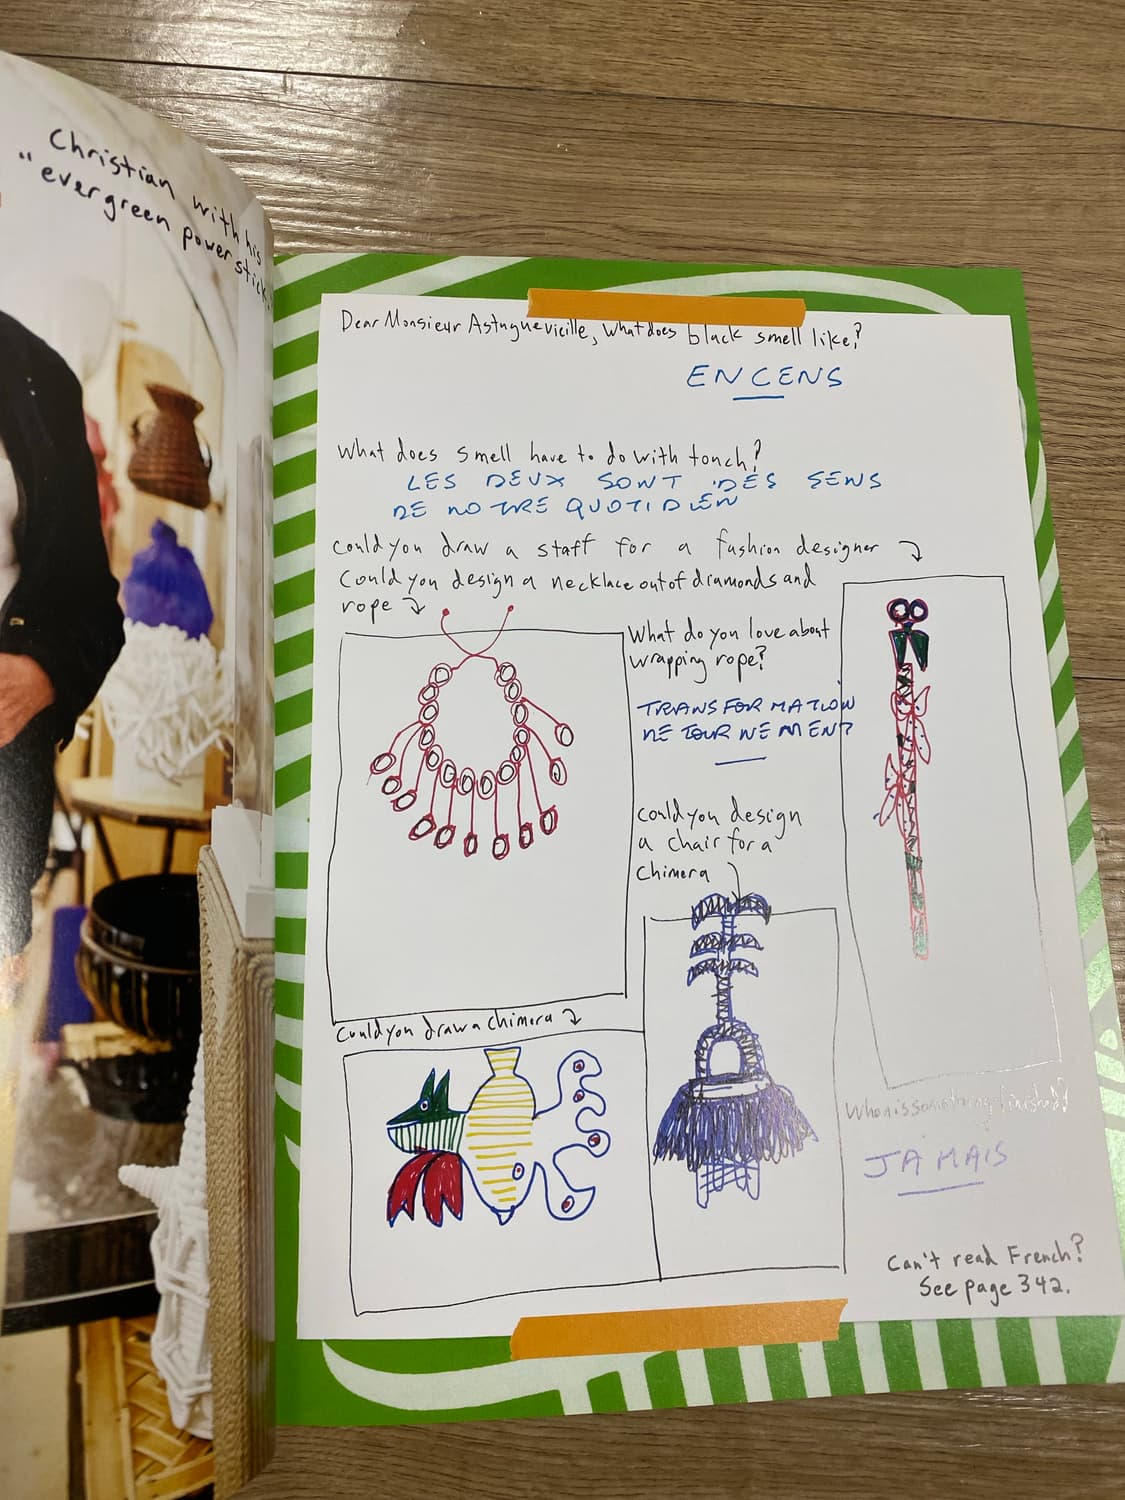 Christian with his
"evergreen power stick."
Dear Monsieur Astuguevieille, what does black smell like?
ENCENS
What does smell have to do with touch?
LES DEUX SONT DES SENS
DE NOTRE QUOTIDIEN
Could you draw a staff for a fashion designer
Could you design a necklace out of diamonds and
rope
What do you love about
wrapping rope?
TRANSFORMATION
DETOURNEMENT
Could you design
a chair for a
chimera
Could you draw a chimera
When is something finished?
JAMAIS
Can't read French?
See page 342.